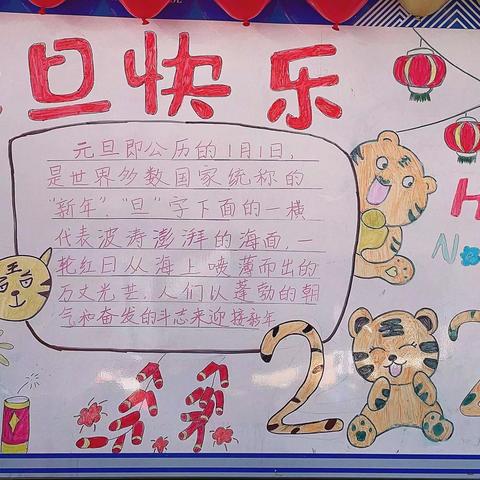 旦快乐
元旦即公历的1月1日，
是世界多数国家统称的
"新年"."旦"字下面的一横
代表波涛澎湃的海面，一
轮红日从海上喷薄而出的
万丈光芒，人们以蓬勃的朝
气和奋发的斗志来迎接新年
王
H
N
2 2